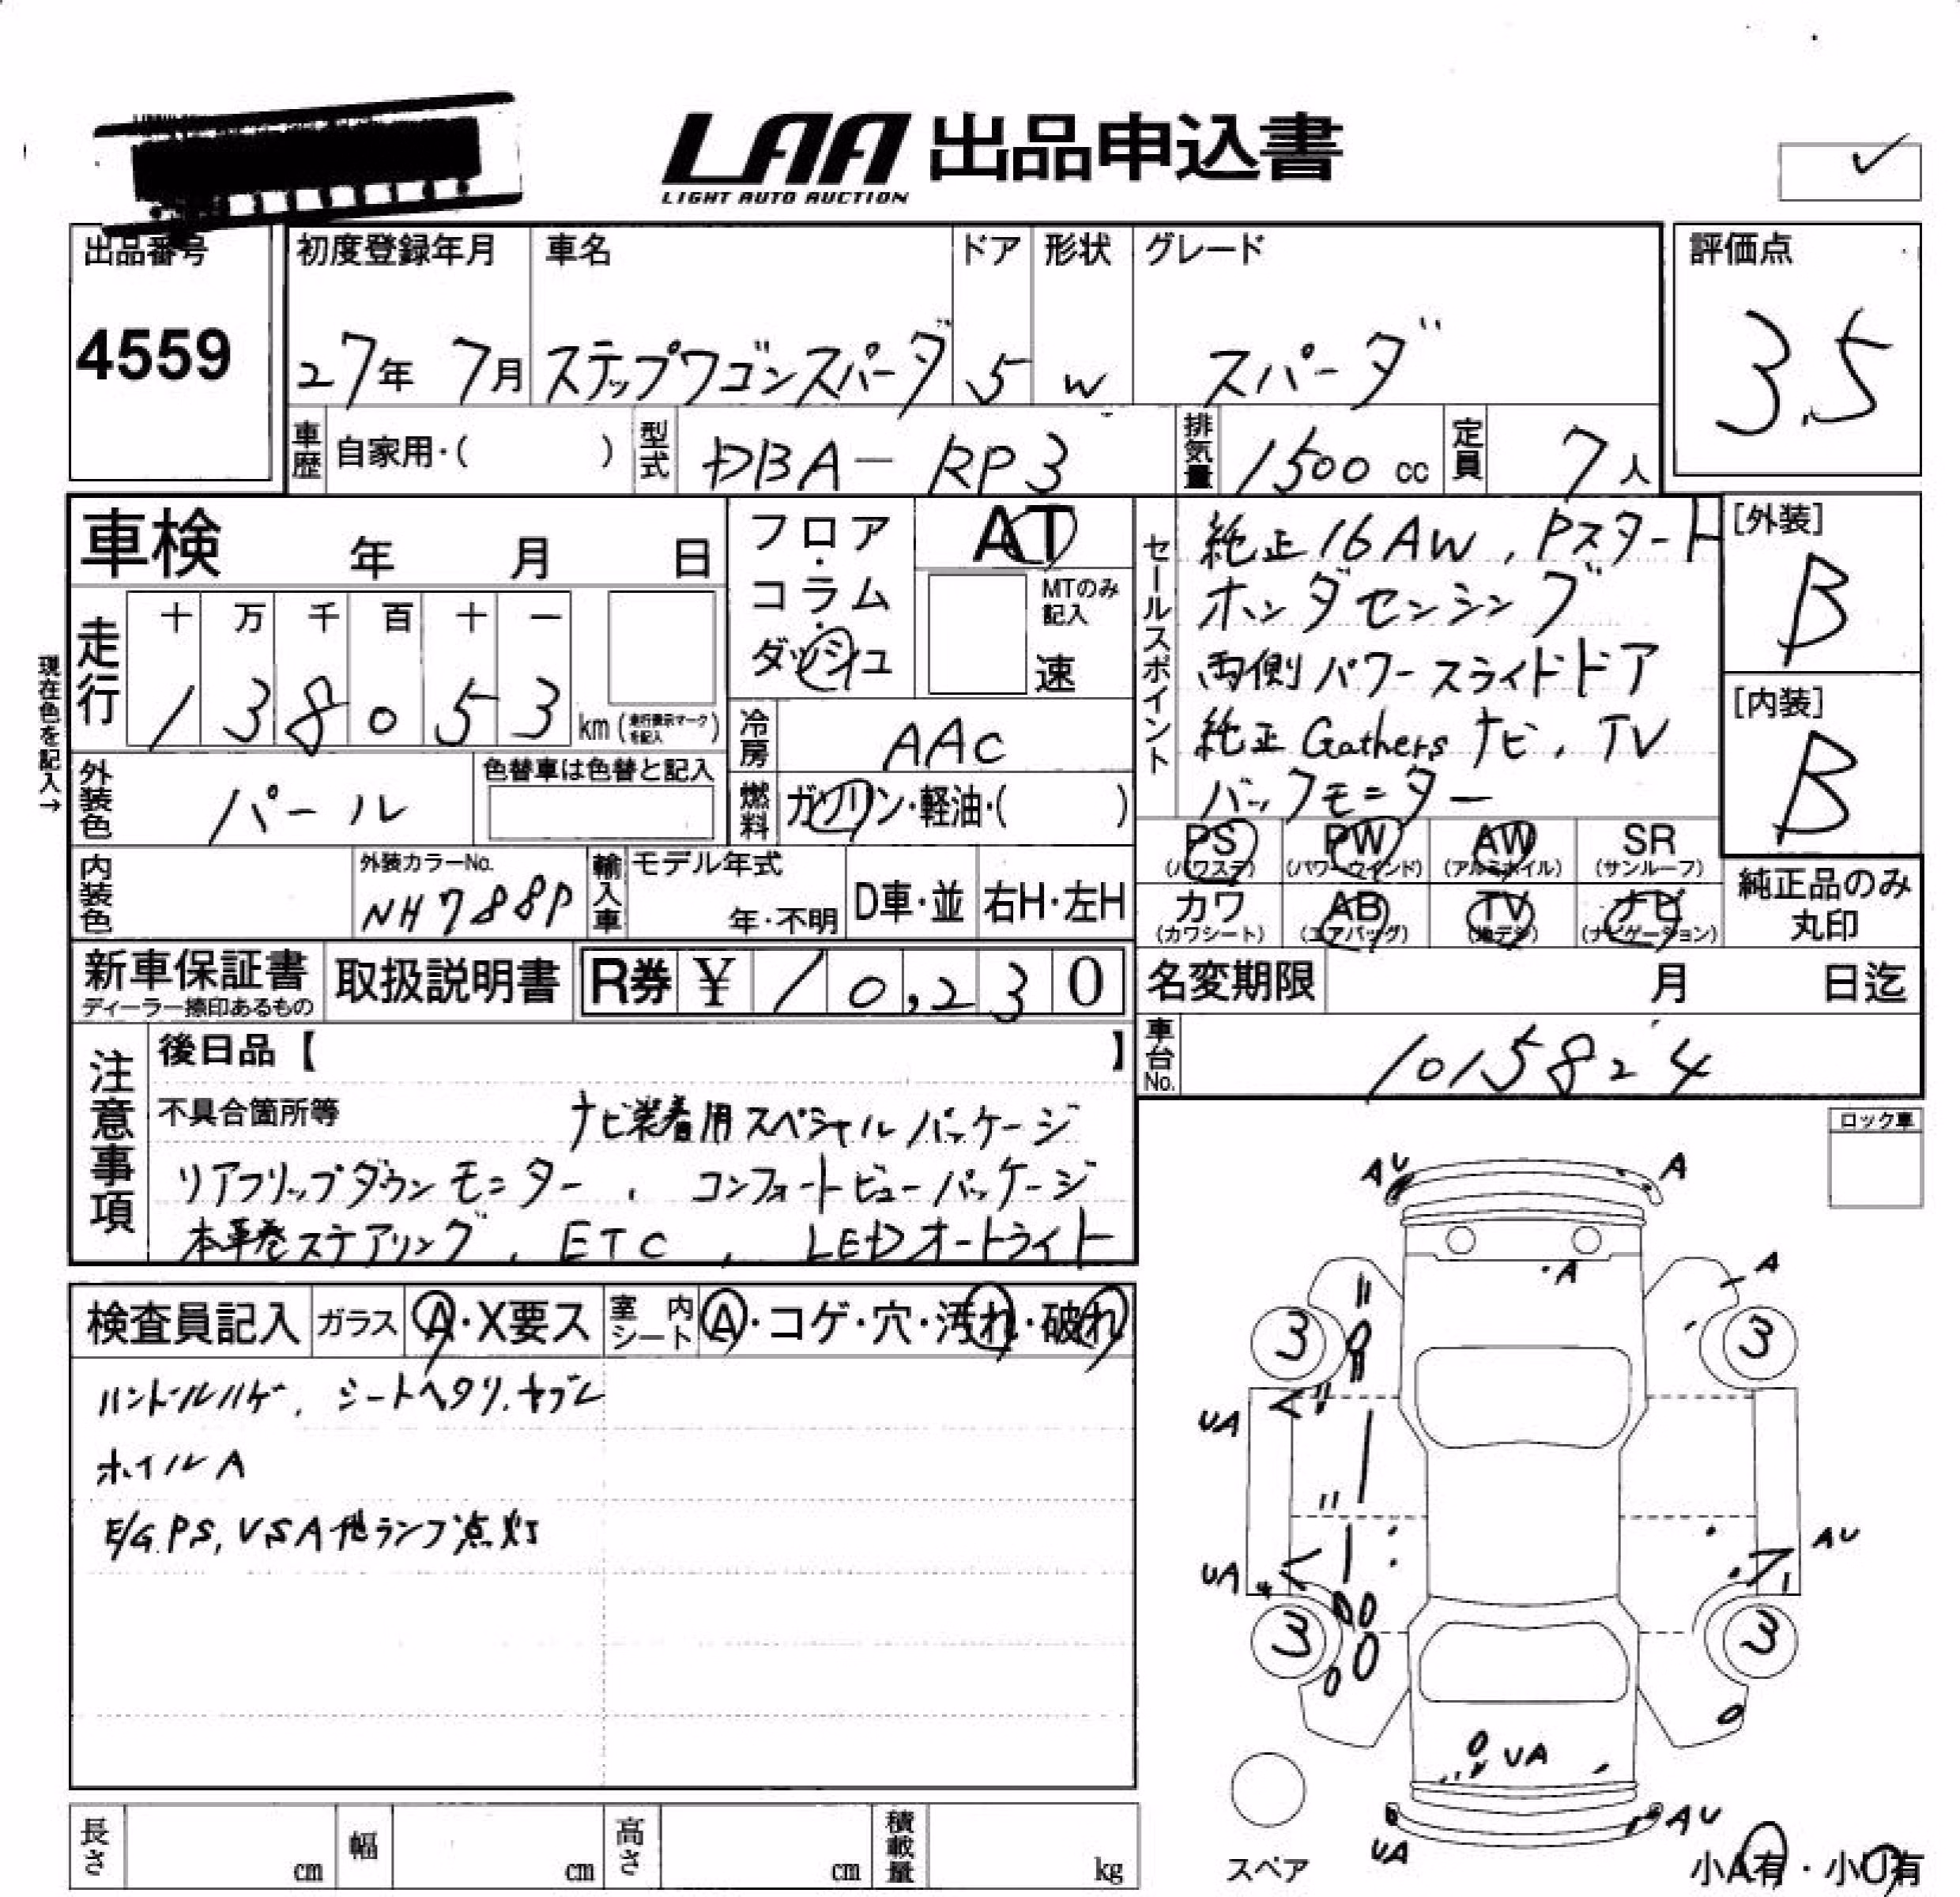 LAA 出品申込書
LIGHT AUTO AUCTION
出品番号
4559
初度登録年月
27年 7月
車名
ステップワゴンスパーダ
ドア
5
形状
W
グレード
スパーダ
評価点
3.5
車歴 自家用・( )
型式 DBA-RP3
排気量 1500 cc
定員 7人
車検 年 月 日
フロア・コラム・ダッシュ
AT
MTのみ記入
速
現在色を記入→
走行
十 万 千 百 十 一
1 3 8 0 5 3 km (走行表示マークを記入)
冷房 AAC
燃料 ガソリン・軽油・( )
外装色 パール
色替車は色替と記入
内装色
外装カラーNo.
NH788P
輸入車
モデル年式
年・不明
D車・並
右H・左H
セールスポイント
純正16AW, Pスタート
ホンダセンシング
両側パワースライドドア
純正Gathersナビ, TV
バックモニター
[外装]
B
[内装]
B
PS (パワステ)
PW (パワーウインド)
AW (アルミホイル)
SR (サンルーフ)
カワ (カワシート)
AB (エアバッグ)
TV (地デジ)
ナビ (ナビゲーション)
純正品のみ丸印
新車保証書
ディーラー捺印あるもの
取扱説明書
R券 ¥ 10,230
名変期限 月 日迄
車台No. 1015824
注意事項
後日品【 】
不具合箇所等 ナビ装着用スペシャルパッケージ
リアフリップダウンモニター, コンフォートビューパッケージ
本革巻ステアリング, ETC, LEDオートライト
ロック車
検査員記入
ガラス A・X要ス
室内シート A・コゲ・穴・汚れ・破れ
ハンドルハゲ, シートヘタリ, ヤブレ
ホイルA
E/G, PS, VSA他ランプ点灯
AU
A
A
A
3
3
UA
AU
UA
3
3
UA
UA
AU
スペア
小A有・小U有
長さ cm
幅 cm
高さ cm
積載量 kg